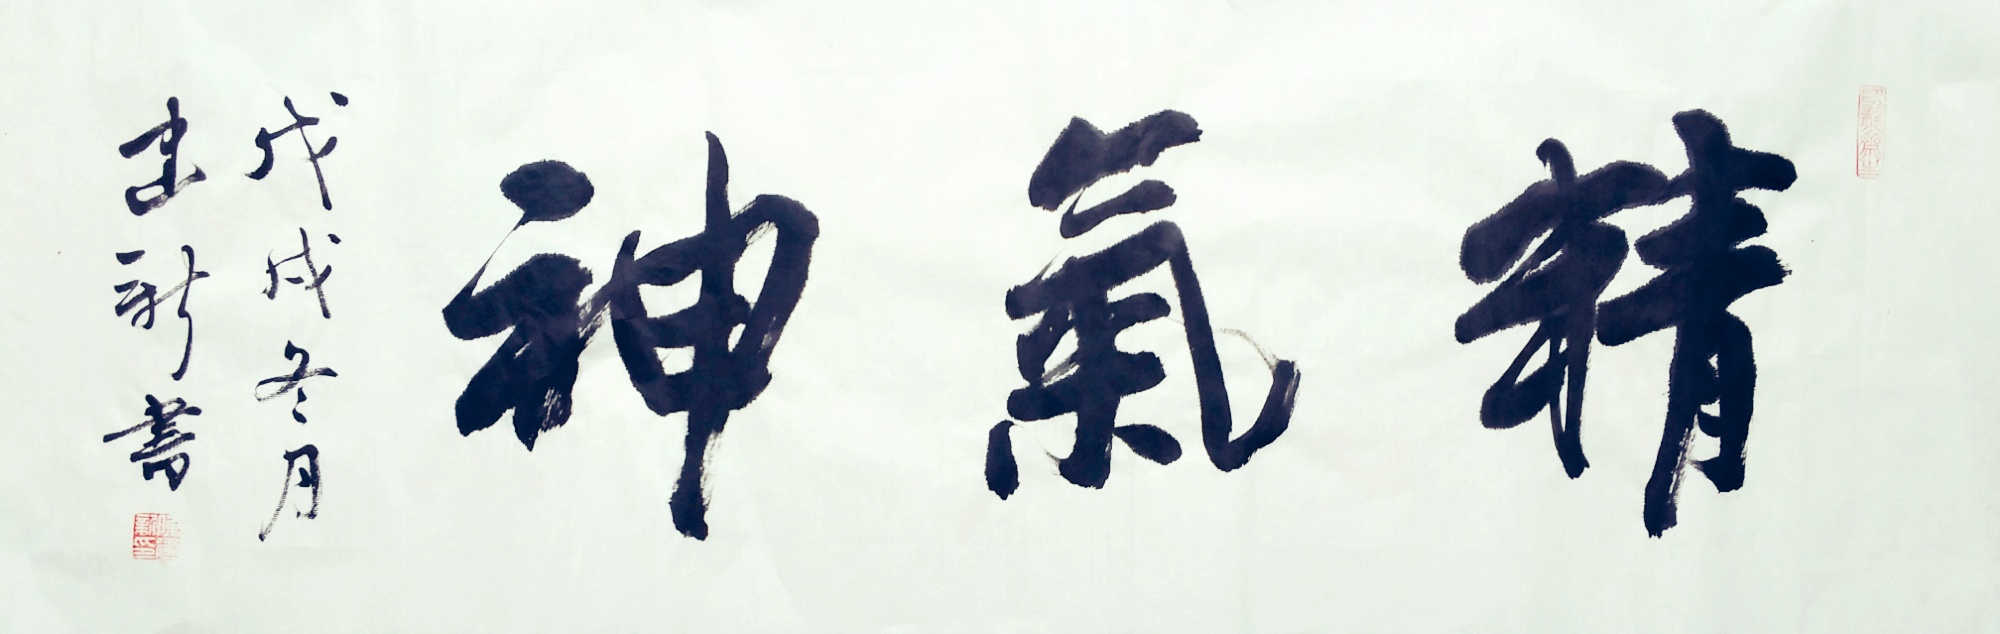 精氣神
戊戌冬月
新書